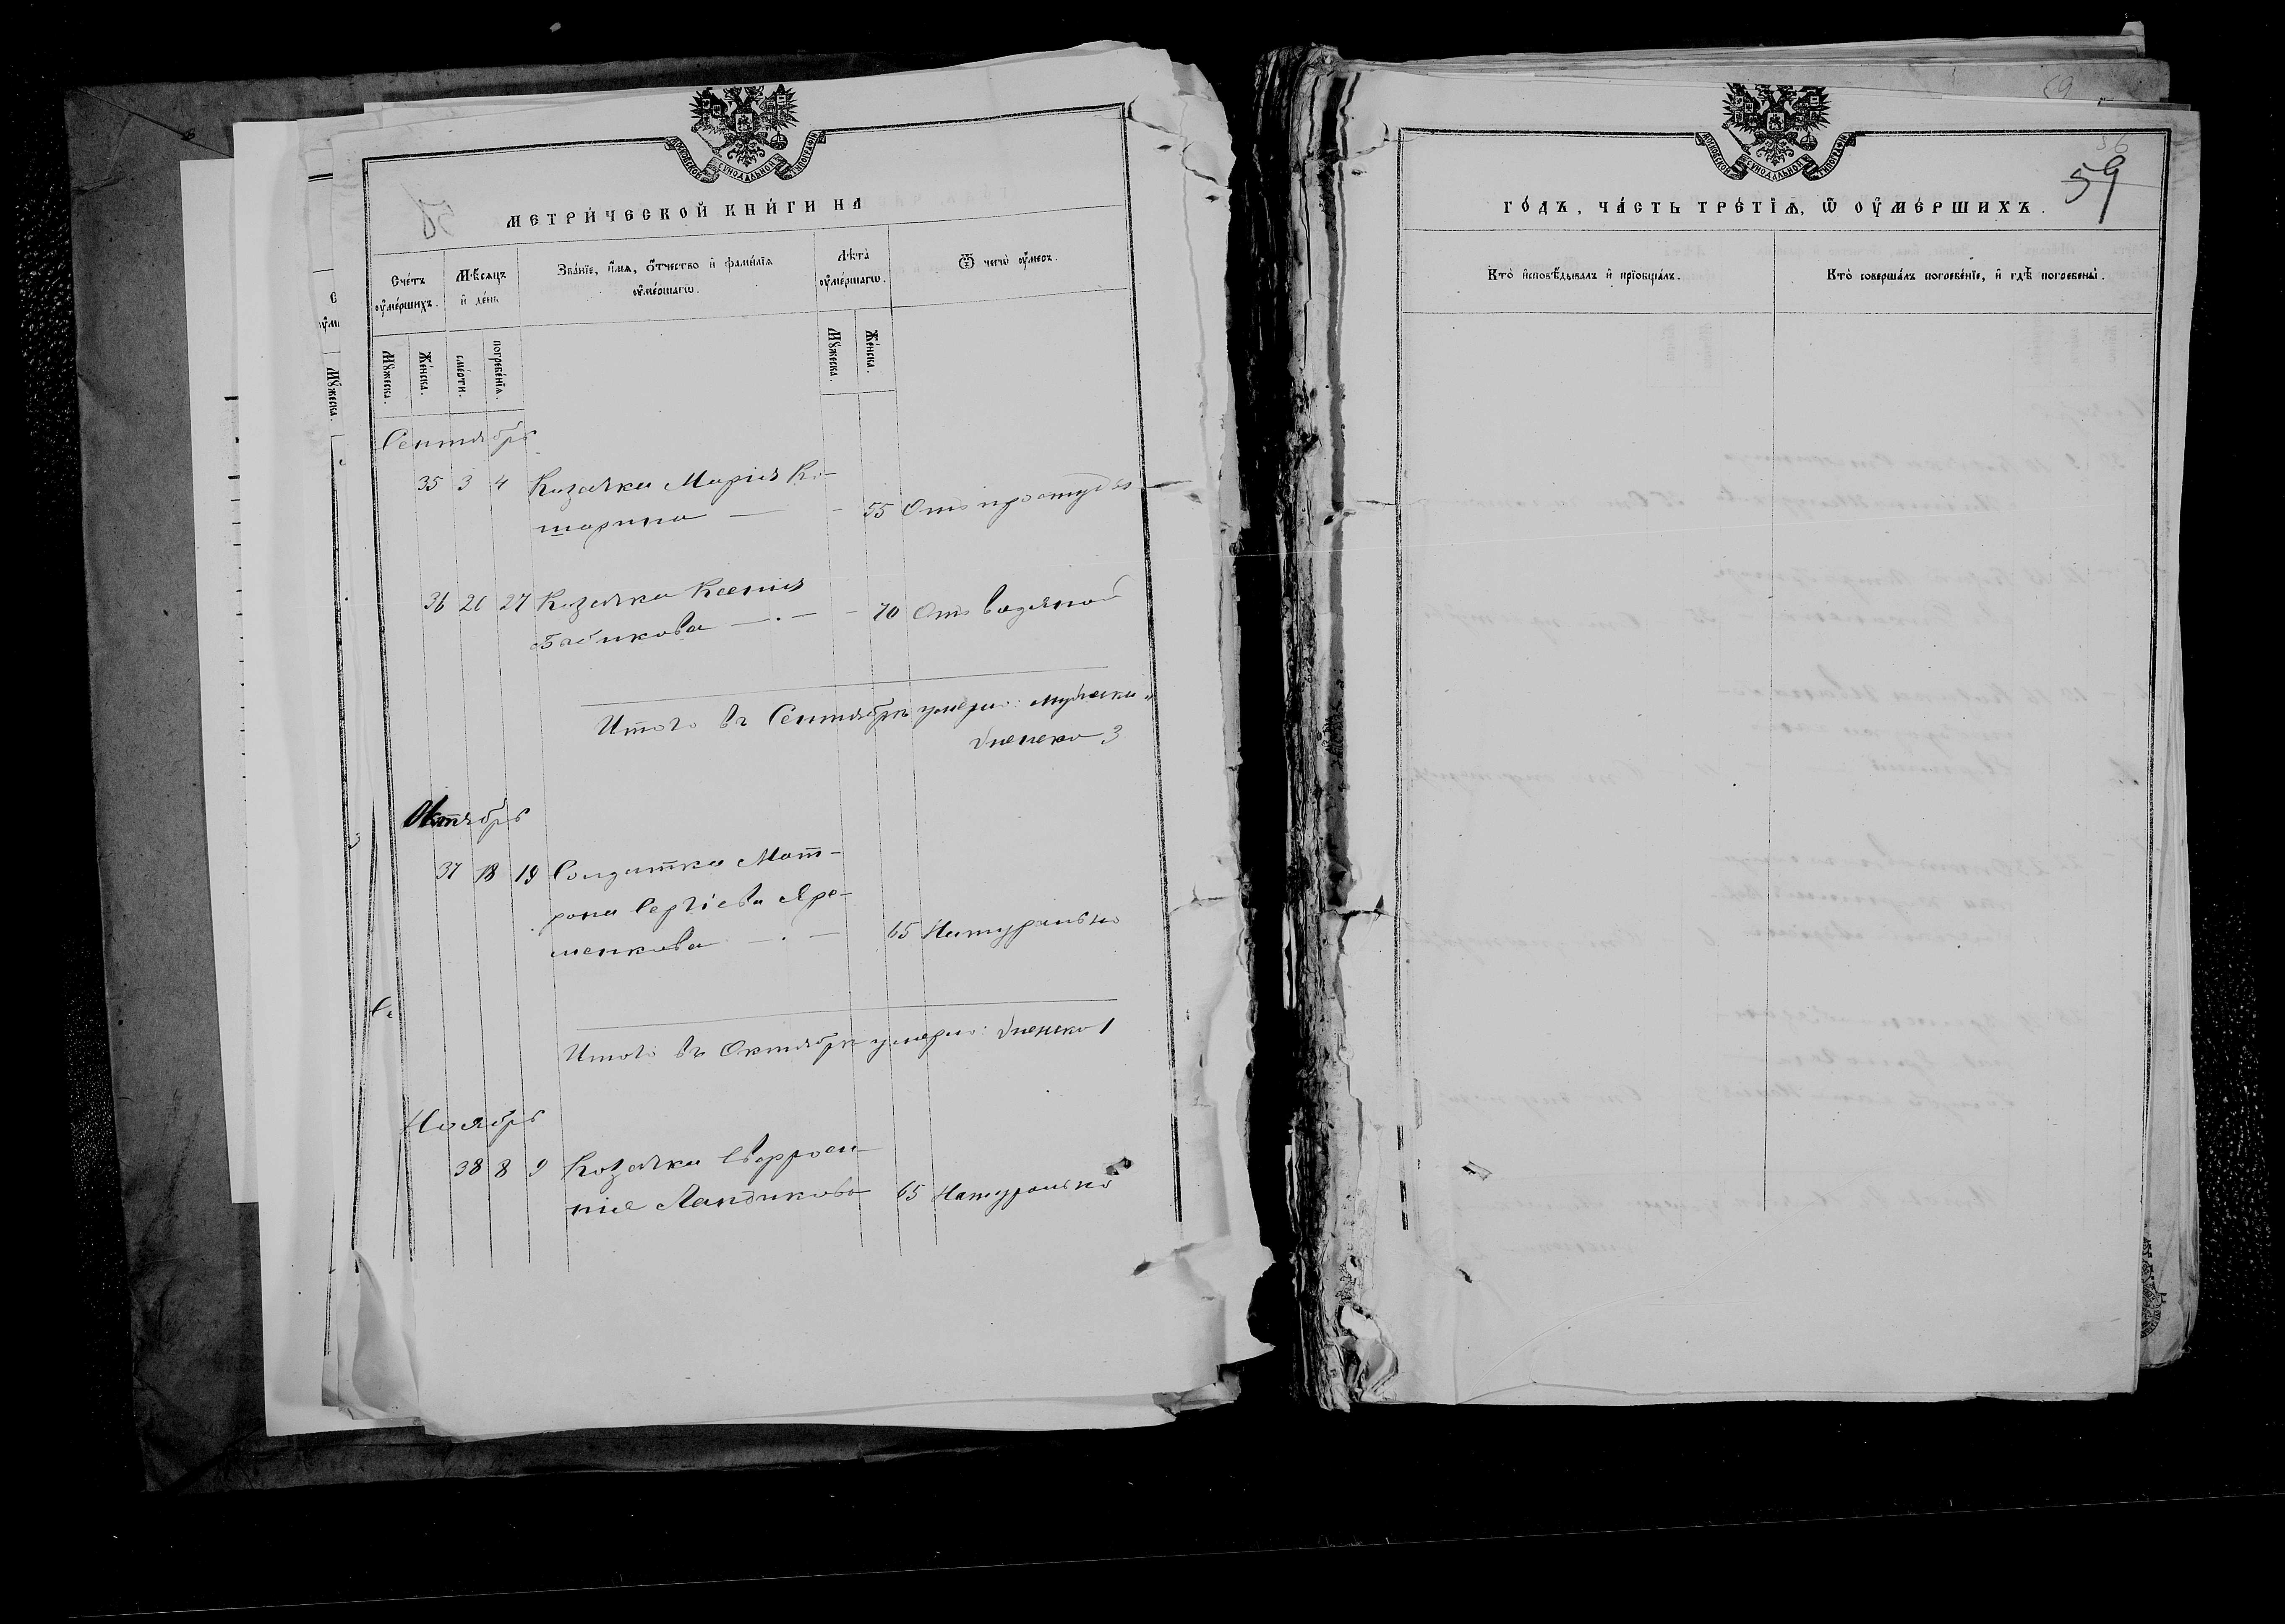 МОСКОВСКОЙ СУНОДАЛЬНОЙ ТИПОГРАФІИ
МЕТРИ́ЧЕСКОЙ КНИ́ГИ НА
Сче́тъ оу҆ме́ршихъ.
Мѣ́сяцъ и҆ де́нь
Зва́нїе, и҆́мѧ, ѻ҆́тчество и҆ фами́лїѧ оу҆ме́ршагѡ.
Лѣ́та оу҆ме́ршагѡ.
Ѿ чегѡ̀ оу҆́меръ.
Мꙋ́жеска.
Же́нска.
сме́рти.
погребе́нїѧ.
Мꙋ́жеска.
Же́нска.
Сентябрь
35 3 4 Козачка Марія Ко-
шарина — 55 Отъ простуды
36 26 27 Козачка Ксенія
Бабикова — 70 Отъ водяной
Итого въ Сентябрѣ умерло: мужеска "
женска 3
Октябрь
37 18 19 Солдатка Мат-
рона Сергіева Яре-
менкова — 65 Натурально
Итого въ Октябрѣ умерло: женска 1
Ноябрь
38 8 9 Козачка Евфроси
нія 65 Натурально
МОСКОВСКОЙ СУНОДАЛЬНОЙ ТИПОГРАФІИ
59
ГО́ДЪ, ЧА́СТЬ ТРЕ́ТЇѦ, Ѿ ОУ҆МЕ́РШИХЪ.
Кто̀ и҆сповѣ́дывалъ и҆ прїѡбща́лъ.
Кто̀ соверша́лъ погребе́нїе, и҆ гдѣ̀ погребены̀.